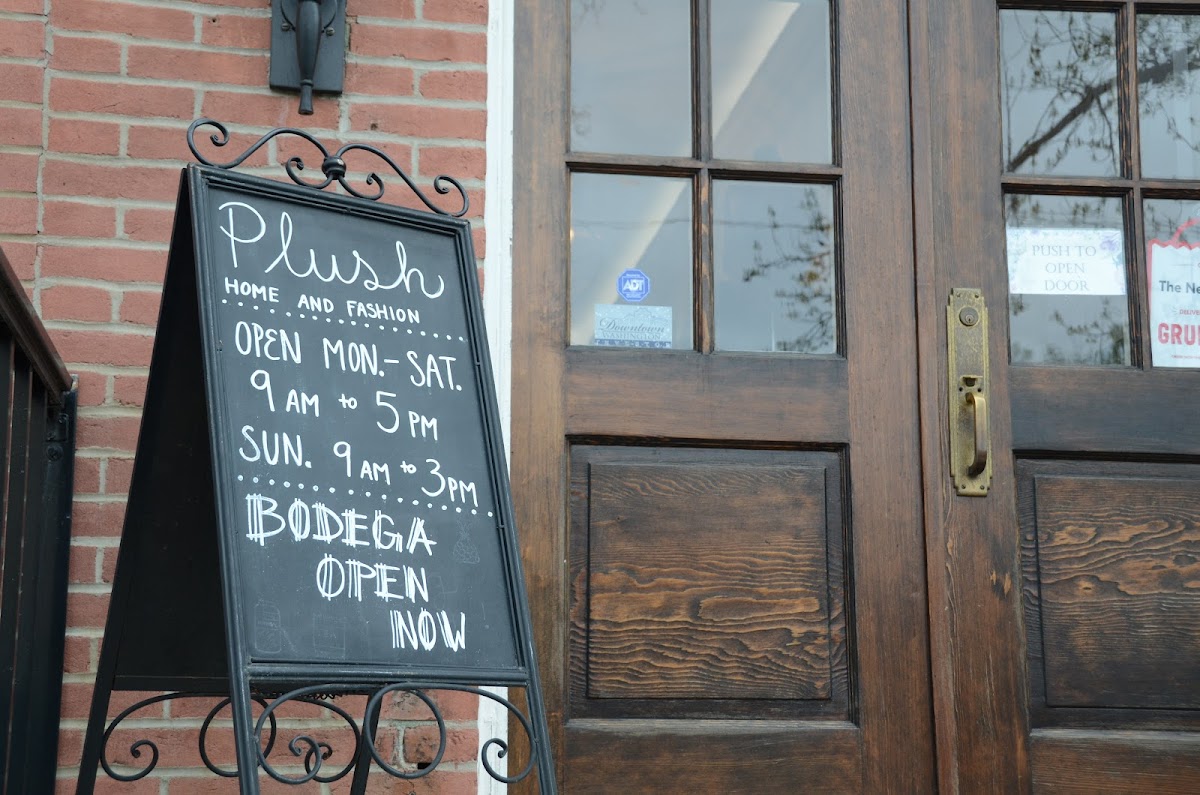 Plush
HOME AND FASHION
OPEN MON.-SAT.
9 AM to 5 PM
SUN. 9 AM to 3PM
BODEGA
OPEN
NOW
ADT
Downtown
WASHINGTON
PUSH TO
OPEN
DOOR
The Ne
GRU